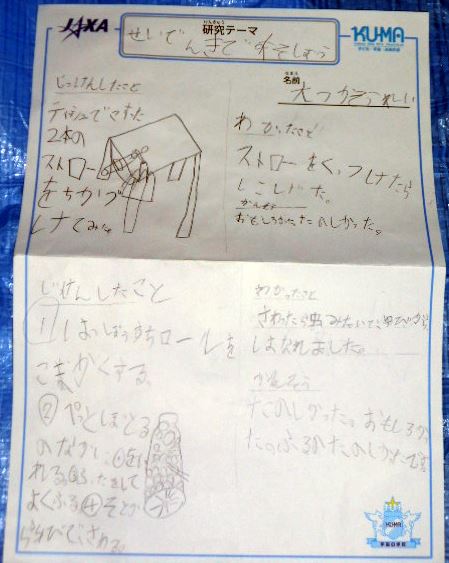 JAXA
研究テーマ
けんきゅう
せいでんきであそぼう
KUMA
じっけんしたこと
ティッシュでこすった
2本の
ストロー
をちかづ
けてみた
名前
なまえ
わかったこと
ストローをくっつけたら
かんそう
おもしろかったたのしかった。
じけんしたこと
① はっぽうスチロールを
こまかくする
② ぺっとぼとる
のなかに
れる ③ふたをして
よくふる ④そとから
ゆびでさわる。
わかったこと
さわったら虫みたいで、ゆびから
はなれました。
かんそう
たのしかった。おもしろかっ
た。ふるのたのしかたです
KUMA